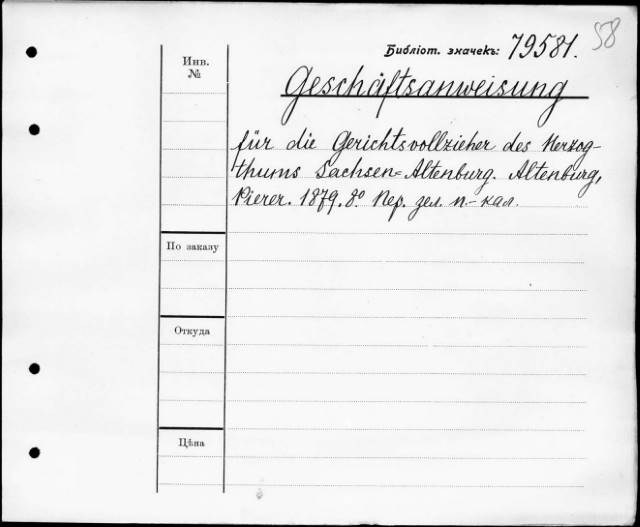 58
Библіот. значекъ: 79581.
Инв. №
Geschäftsanweisung
für die Gerichtsvollzieher des Herzog-
thums Sachsen=Altenburg. Altenburg,
Pierer. 1879. 8º Пер. зел. п.-кал.
По заказу
Откуда
Цѣна